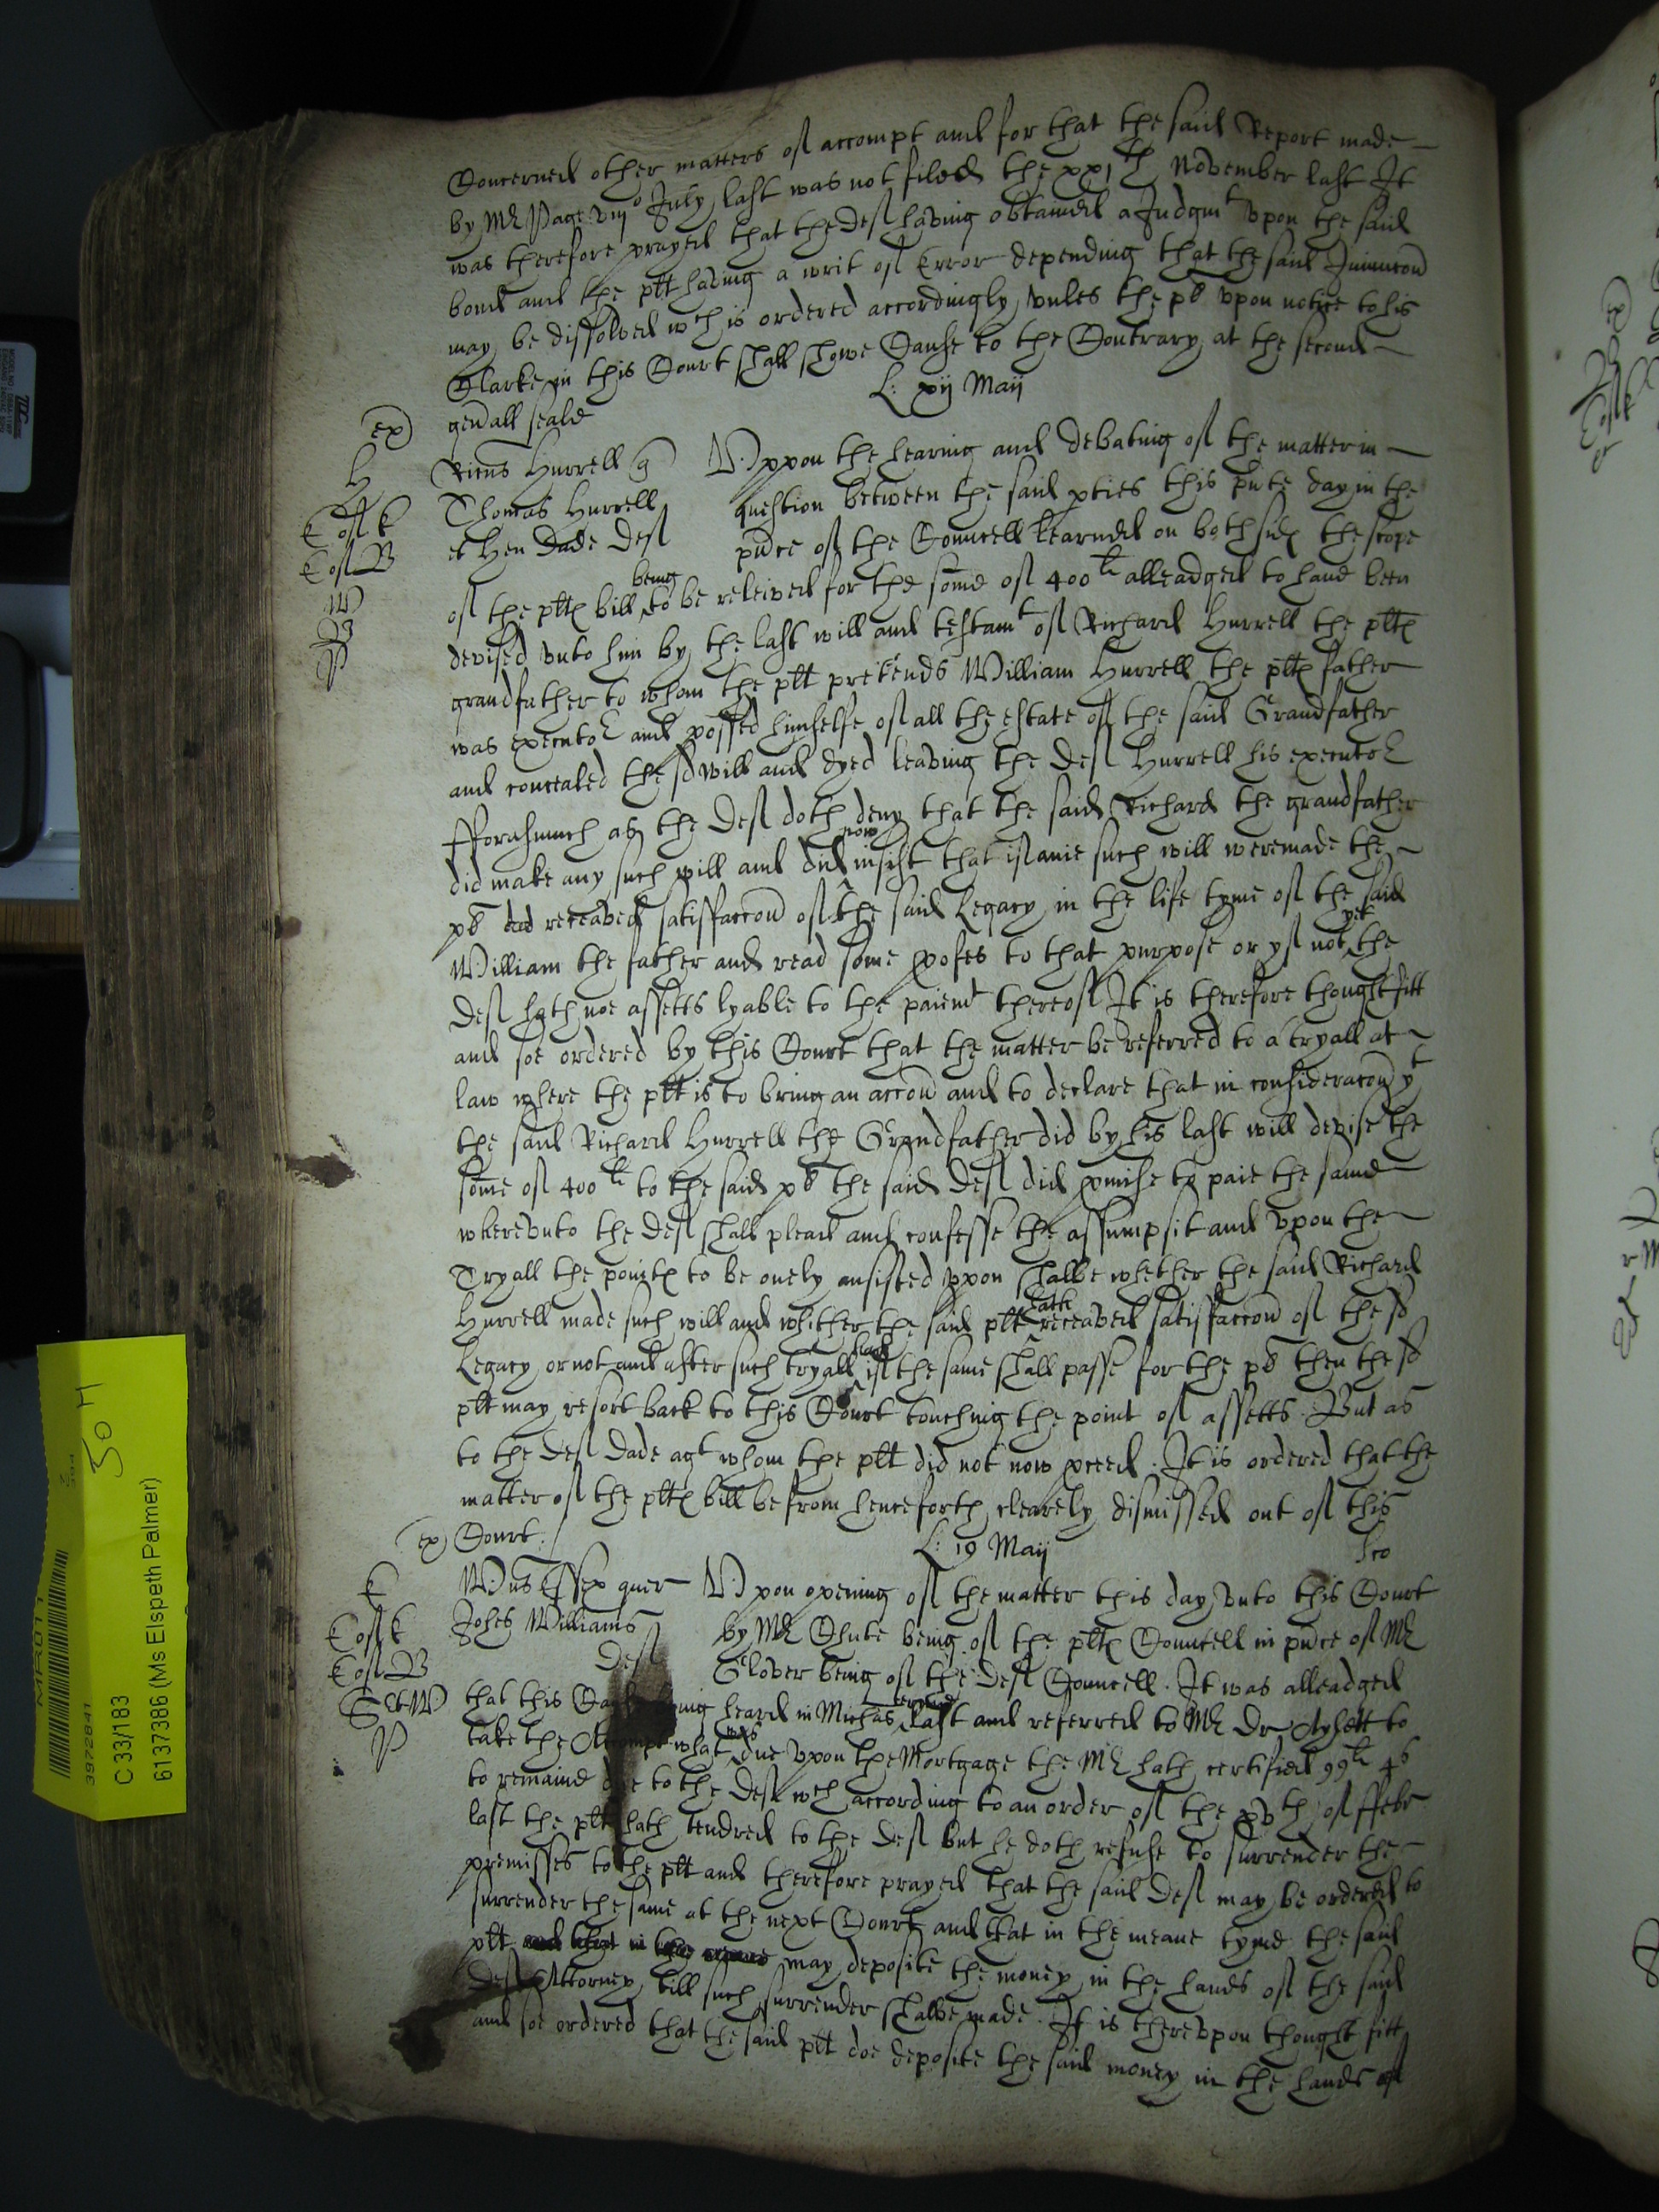 Concerned other matters of accompt and for that the said Report made
by Mr Page viijo July last was not filed the xxjth November last It
was therefore prayed that the def having obtained a Judgmt vpon the said
bond and the plt having a writ of Error depending that the said Iniuncon
may be dissolved wch is ordered accordingly vnles the pl vpon notice to his
Clarke in this Court shall showe Cause to the Contrary at the second
genall seale
L: xij Maij
ex
H
Ricus Hurrell q
Thomas Hurrell
et Hen Dade Def
Vppon the hearing and debating of the matter in
question between the said pties this pnte day in the
pnce of the Councell learned on both sides the scope
of the pltes bill being to be releived for the some of 400li alleadged to haue been
devised vnto him by the last will and testamt of Richard Hurrell the pltes
grandfather to whom the plt pretends William Hurrell the pltes father
was executor and possed himselfe of all the estate of the said Grandfather
and concealed the sd will and dyed leaving the Def Hurrell his executor
Fforasmuch as the Def doth deny that the said Richard the grandfather
did make any such will and did now insist that if anie such will were made the
pl receaved satisfaccon of the said Legacy in the life tyme of the said
William the father and read some profes to that purpose or yf not yet the
Def hath noe assetts lyable to the paiemt thereof It is therefore thought fitt
and soe ordered by this Court that the matter be referred to a tryall at
law where the plt is to bring an accon and to declare that in consideracon yt
the said Richard Hurrell the Grandfather did by his last will devise the
some of 400li to the said pl the said Def did pmise to paie the same
wherevnto the Def shall plead and confesse the assumpsit and vpon the
Tryall the pointes to be onely insisted vpon shalbe whether the said Richard
Hurrell made such will and whither the said plt hath receaved satisfaccon of the sd
Legacy or not and after such tryall had if the same shall passe for the pl then the sd
plt may resort back to this Court touching the point of assetts. But as
to the Def Dade agt whom the plt did not now pceed. It is ordered that the
matter of the pltes bill be from henceforth clearely dismissed out of this
ex Court.
L: 19 Maij
E
Wmus Essex quer
Johes Williams
Def
Vpon opening of the matter this day vnto this Court
by Mr Chute being of the pltes Councell in pnce of Mr
Glover being of the Def Councell. It was alleadged
that this heard in Michas terme last and referred to Mr Dr Aylett to
take the Accompt what was due vpon the Mortgage the Mr hath certified 99li 4s
to remaine due to the Def wch according to an order of the xvth of Ffebr
last the plt hath tendred to the Def but he doth refuse to surrender the
premisses to the plt and therefore prayed that the said Def may be ordered to
surrender the same at the next Court and that in the meane tyme the said
plt may deposite the money in the hands of the said
Def Attorney till such surrender shalbe made. It is therevpon thought fitt
and soe ordered that the said plt doe deposite the said money in the hands of
MR011
3972841
C 33/183
6137386 (Ms Elspeth Palmer)